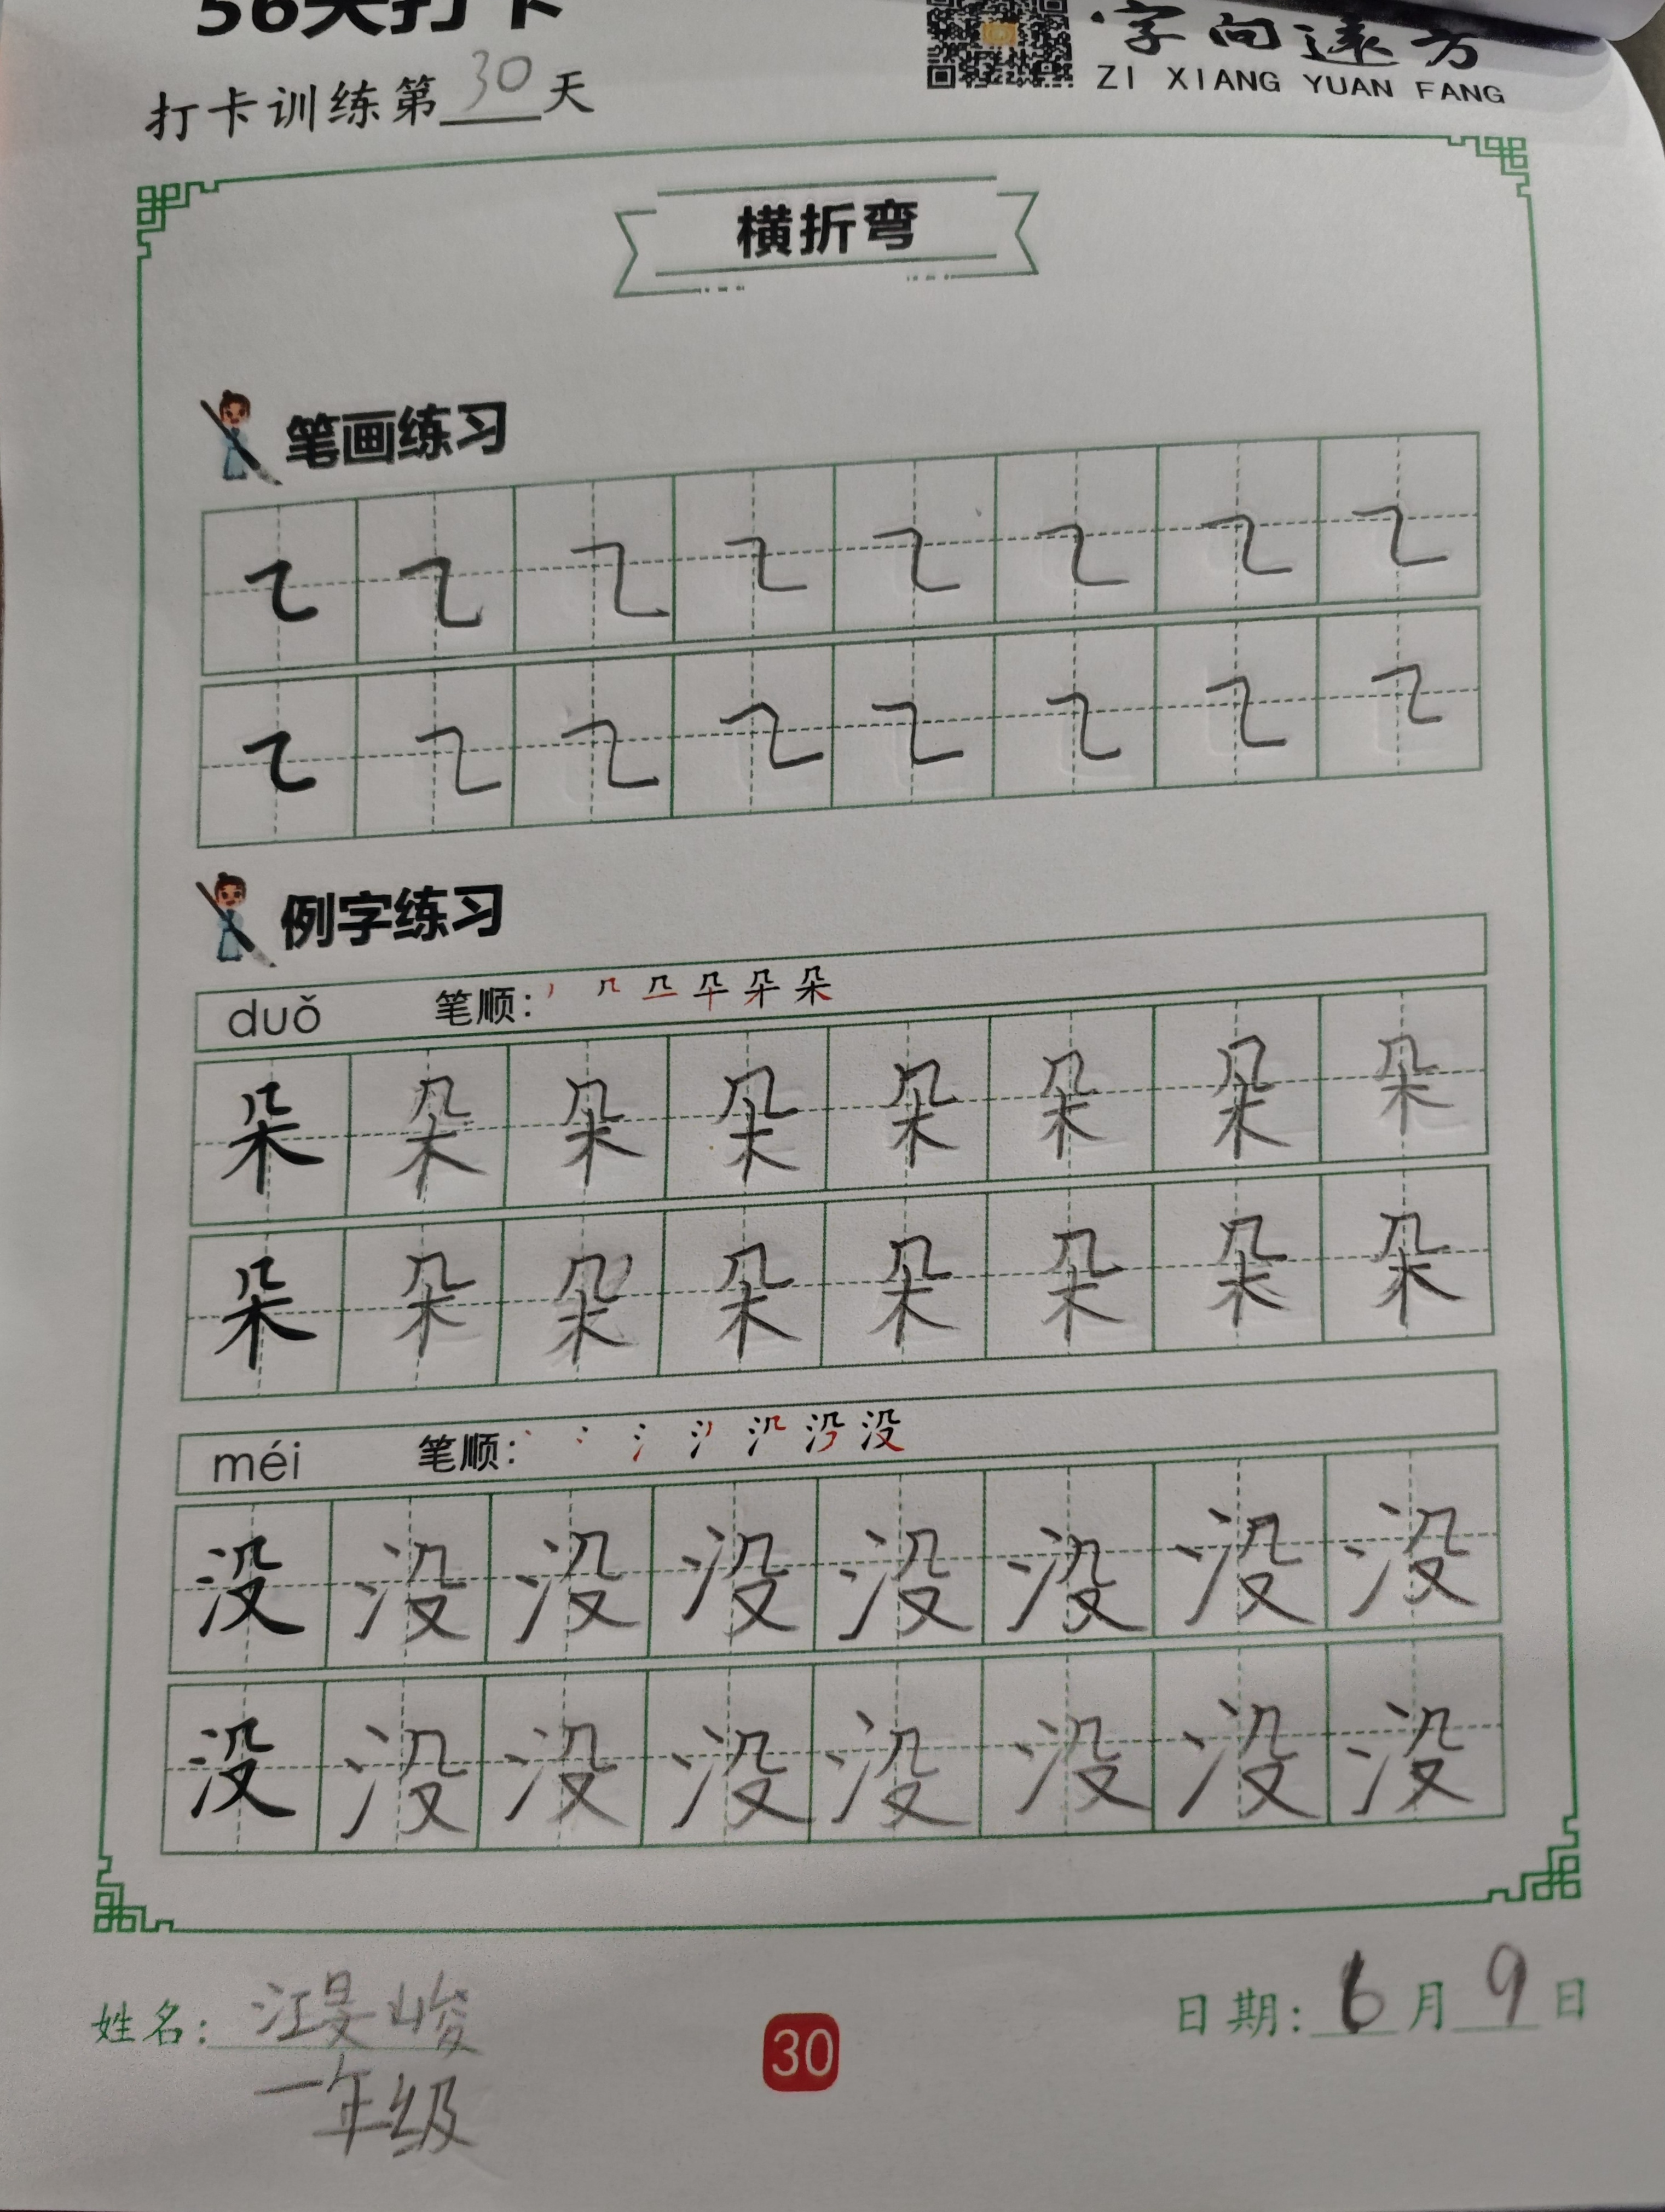 56天打卡
字向远方
ZI XIANG YUAN FANG
打卡训练第30天
横折弯
笔画练习
例字练习
duǒ 笔顺：
朵 朵 朵 朵 朵 朵 朵 朵
朵 朵 朵 朵 朵 朵 朵 朵
méi 笔顺：
没 没 没 没 没 没 没 没
没 没 没 没 没 没 没 没
姓名：江旻峻
一年级
30
日期：6月9日